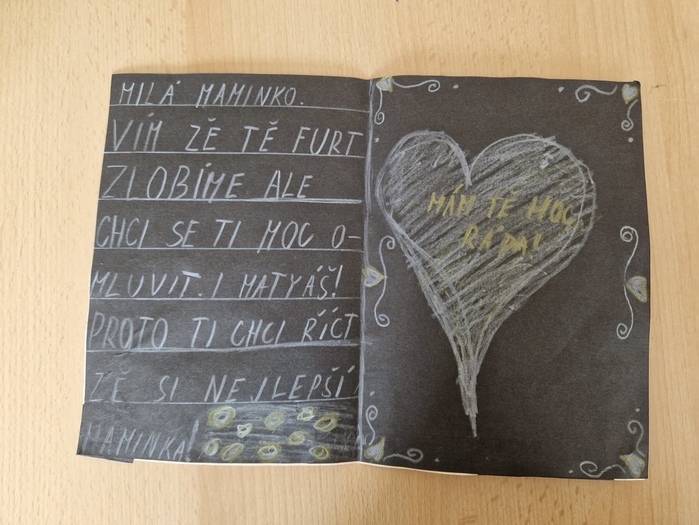 MILÁ MAMINKO.
VÍM ZĚ TĚ FURT
ZLOBÍME ALE
CHCI SE TI MOC O-
MLUVIT. I MATYÁŠ!
PROTO TI CHCI ŘÍCT
ZĚ SI NEJLEPŠÍ
MAMINKA!
MÁM TĚ MOC
RÁDA!